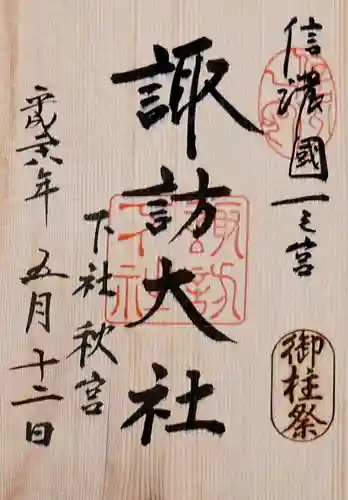 信濃國一之宮
御柱祭
諏訪大社
諏訪下社
下社秋宮
平成廿八年 五月十二日